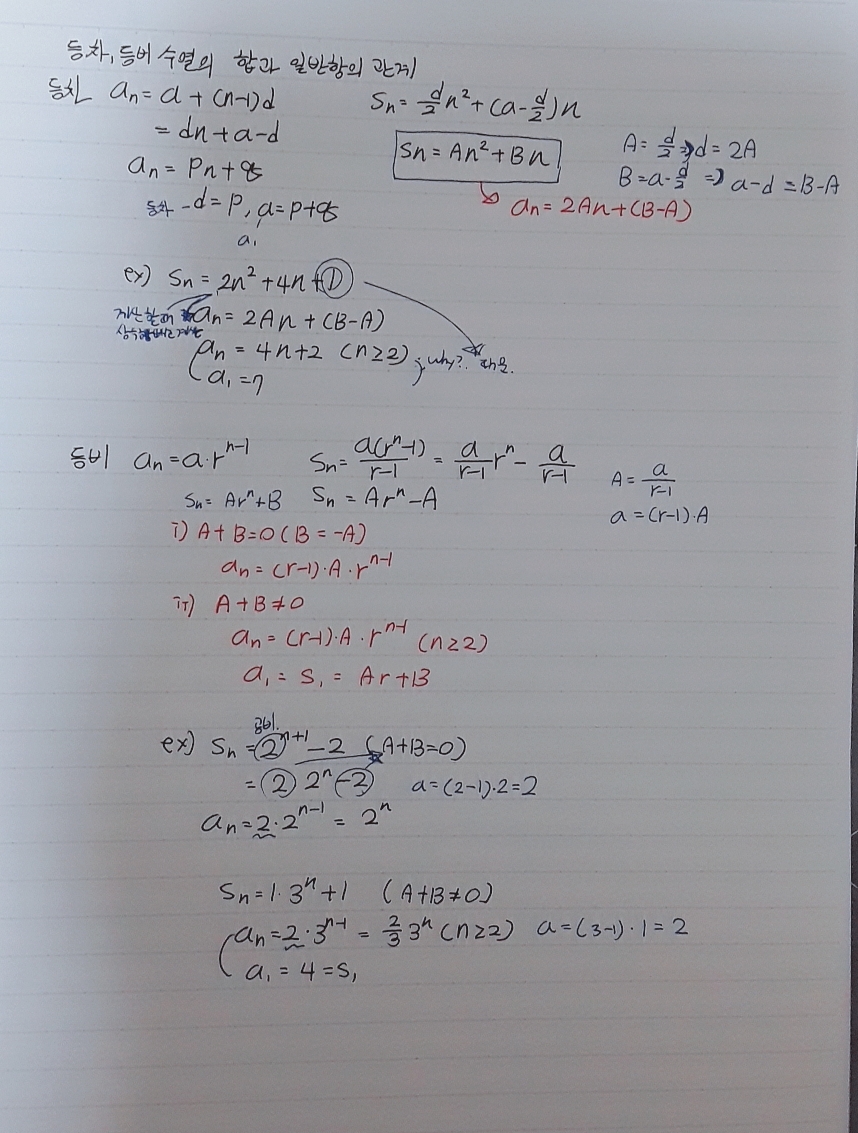 등차, 등비 수열의 합과 일반항의 관계
등차 an = a + (n-1)d Sn = d/2 n² + (a - d/2)n
= dn + a-d
Sn = An² + Bn
A = d/2 => d = 2A
B = a - d/2 => a-d = B-A
an = pn + q
an = 2An + (B-A)
등차 - d = p, a = p+q
a₁
ex) Sn = 2n² + 4n + ①
계산할때
an = 2An + (B-A)
an = 4n+2 (n≥2) ; why?
a₁ = 7
등비 an = a·r^(n-1) Sn = a(r^n - 1)/(r-1) = a/(r-1) r^n - a/(r-1)
A = a/(r-1)
a = (r-1)·A
Sn = Ar^n + B Sn = Ar^n - A
i) A+B=0 (B=-A)
an = (r-1)·A·r^(n-1)
ii) A+B≠0
an = (r-1)·A·r^(n-1) (n≥2)
a₁ = S₁ = Ar+B
공비
ex) Sn = 2^(n+1) - 2 (A+B=0)
= 2 2^n - 2 a = (2-1)·2 = 2
an = 2·2^(n-1) = 2^n
Sn = 1·3^n + 1 (A+B≠0)
an = 2·3^(n-1) = 2/3 3^n (n≥2) a = (3-1)·1 = 2
a₁ = 4 = S₁